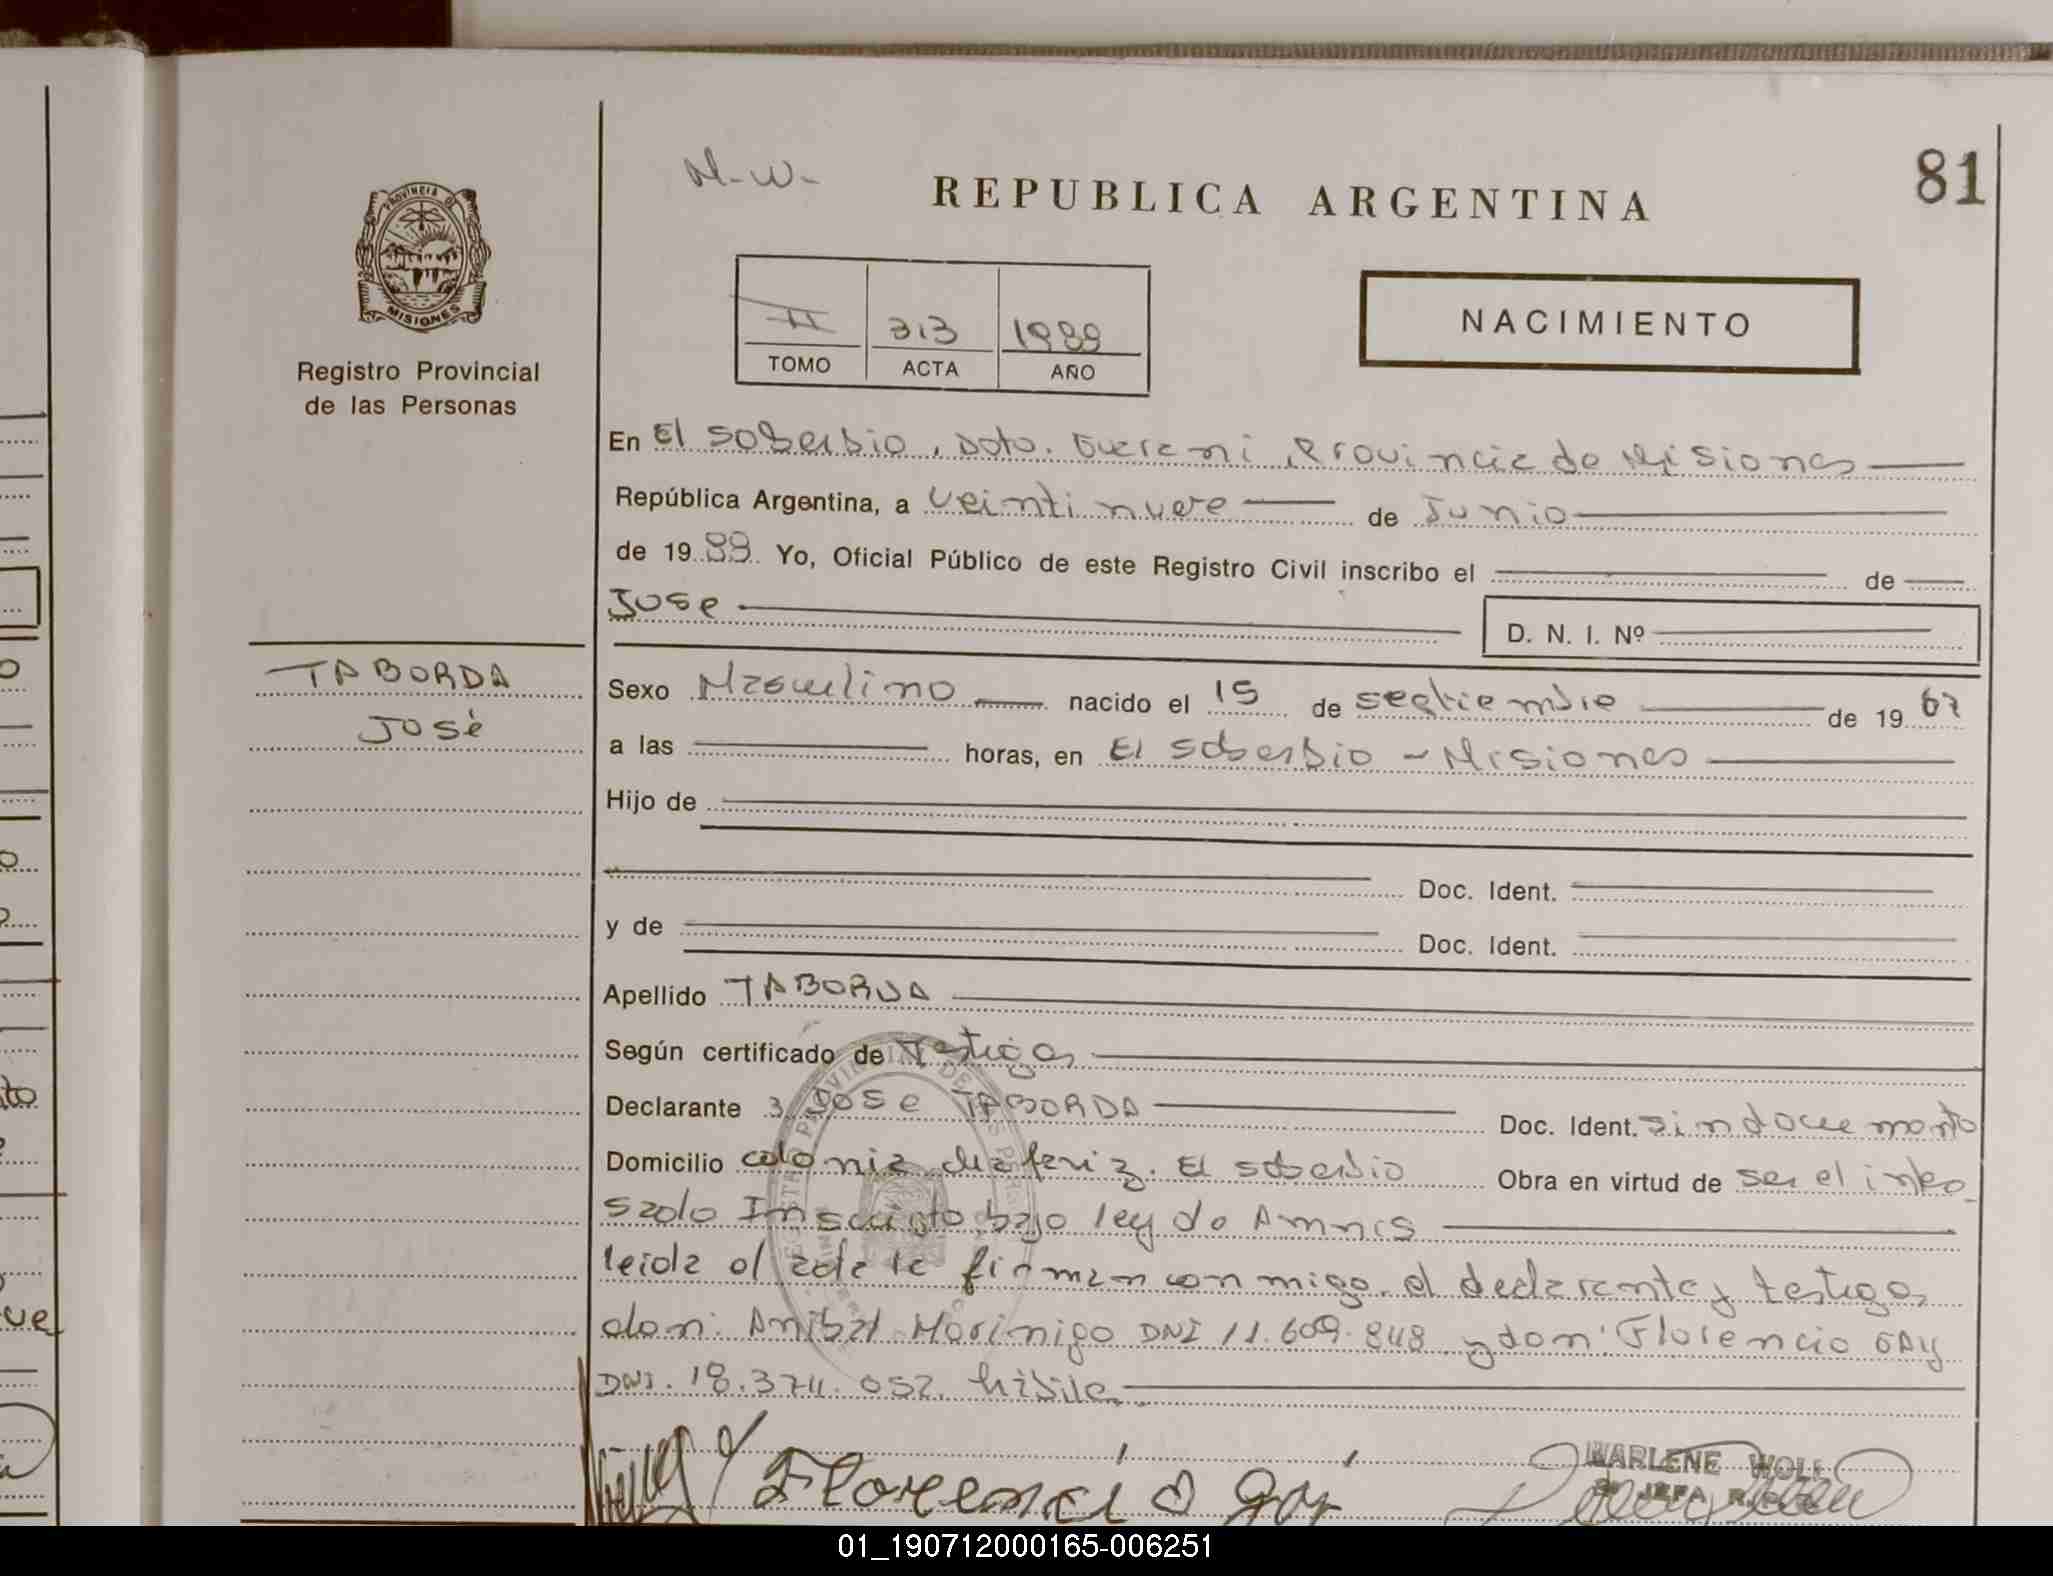 M-W-
REPUBLICA ARGENTINA
81
PROVINCIA DE
MISIONES
Registro Provincial
de las Personas
II 313 1988
TOMO ACTA AÑO
NACIMIENTO
En El Soberbio, Dpto. Guarani, Provincia de Misiones
República Argentina, a veintinueve de Junio
de 1988 Yo, Oficial Público de este Registro Civil inscribo el de
Jose
D. N. I. Nº
TABORDA
José
Sexo Masculino nacido el 15 de septiembre de 1967
a las horas, en El Soberbio - Misiones
Hijo de
Doc. Ident.
y de Doc. Ident.
Apellido TABORDA
Según certificado de testigos
Declarante Jose TABORDA Doc. Ident. sin documento
Domicilio colonia El Soberbio Obra en virtud de ser el intere-
sado Inscripto bajo ley de
leida el acta la firman conmigo el declarante y testigos
don: Anibal Morinigo DNI 11.609.848 y don: Florencio GAY
DNI. 18.374.052. habiles
Florencio Gay
MARLENE WOLL
JEFA
01_190712000165-006251